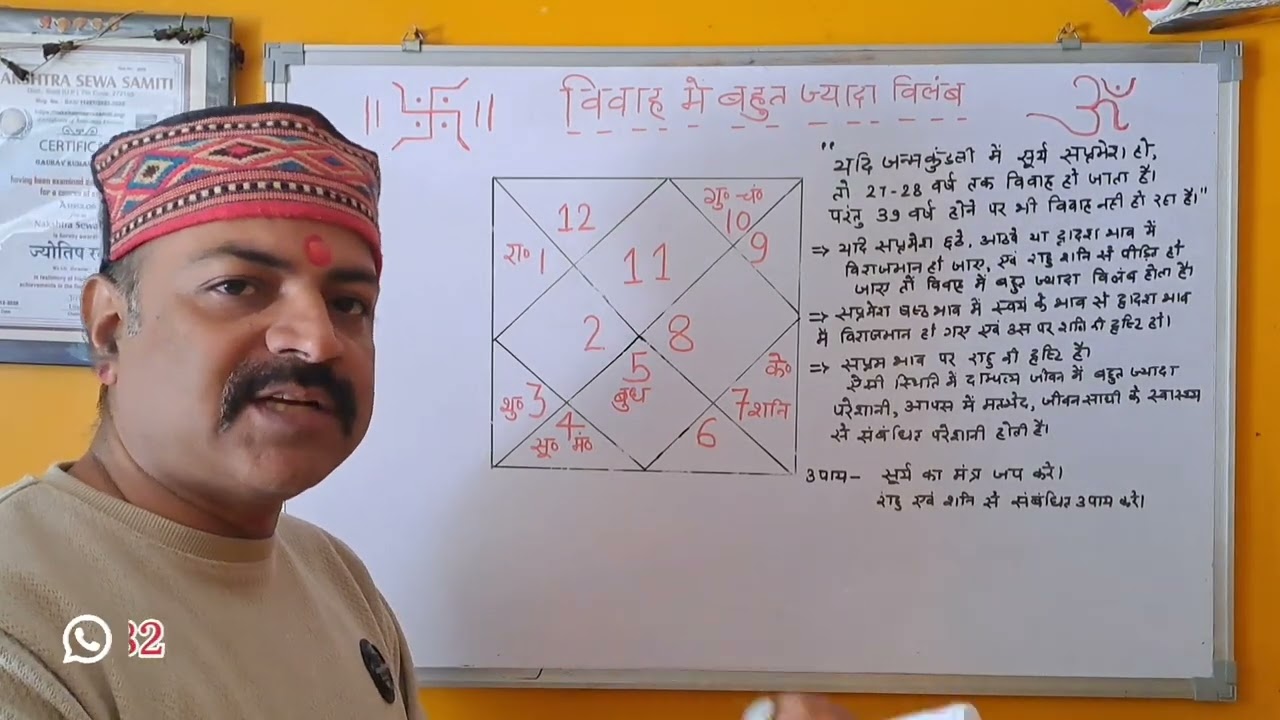 AKSHTRA SEWA SAMITI
CERTIFIC
GAURAV KUMA
having been examined a
for a course of
Nakshtra Sewa
is hereby award
ज्योतिष र
विवाह मे बहुत ज्यादा विलंब
ॐ
12
गु० चं०
10
9
रा० 1
11
2
8
5
बुध
के०
शु० 3
7 शनि
4
सू० मं०
6
"यदि जन्मकुंडली में सूर्य सप्तमेश हो,
तो 27-28 वर्ष तक विवाह हो जाता है।
परंतु 39 वर्ष होने पर भी विवाह नही हो रहा है।"
⇒ यदि सप्तमेश छठे, आठवे या द्वादश भाव में
विराजमान हो जाए, एवं राहु शनि से पीड़ित हो
जाए तो विवाह में बहुत ज्यादा विलंब होता है।
⇒ सप्तमेश षष्ठ भाव में स्वयं के भाव से द्वादश भाव
में विराजमान हो गए एवं उस पर शनि की दृष्टि हो।
⇒ सप्तम भाव पर राहु की दृष्टि है।
ऐसी स्थिति में दाम्पत्य जीवन में बहुत ज्यादा
परेशानी, आपस में मतभेद, जीवनसाथी के स्वास्थ्य
से संबंधित परेशानी होती है।
उपाय- सूर्य का मंत्र जप करे।
राहु एवं शनि से संबंधित उपाय करे।
32